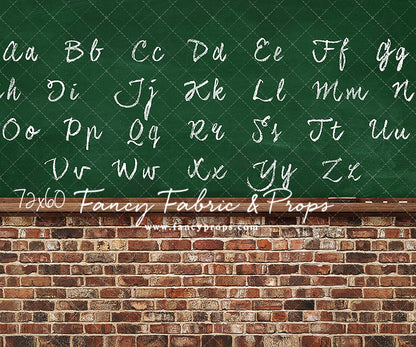 Aa Bb Cc Dd Ee Ff Gg
h Ii Jj Kk Ll Mm N
Oo Pp Qq Rr Ss Tt Uu
Vv Ww Xx Yy Zz
72x60 Fancy Fabric & Props
www.fancyprops.com